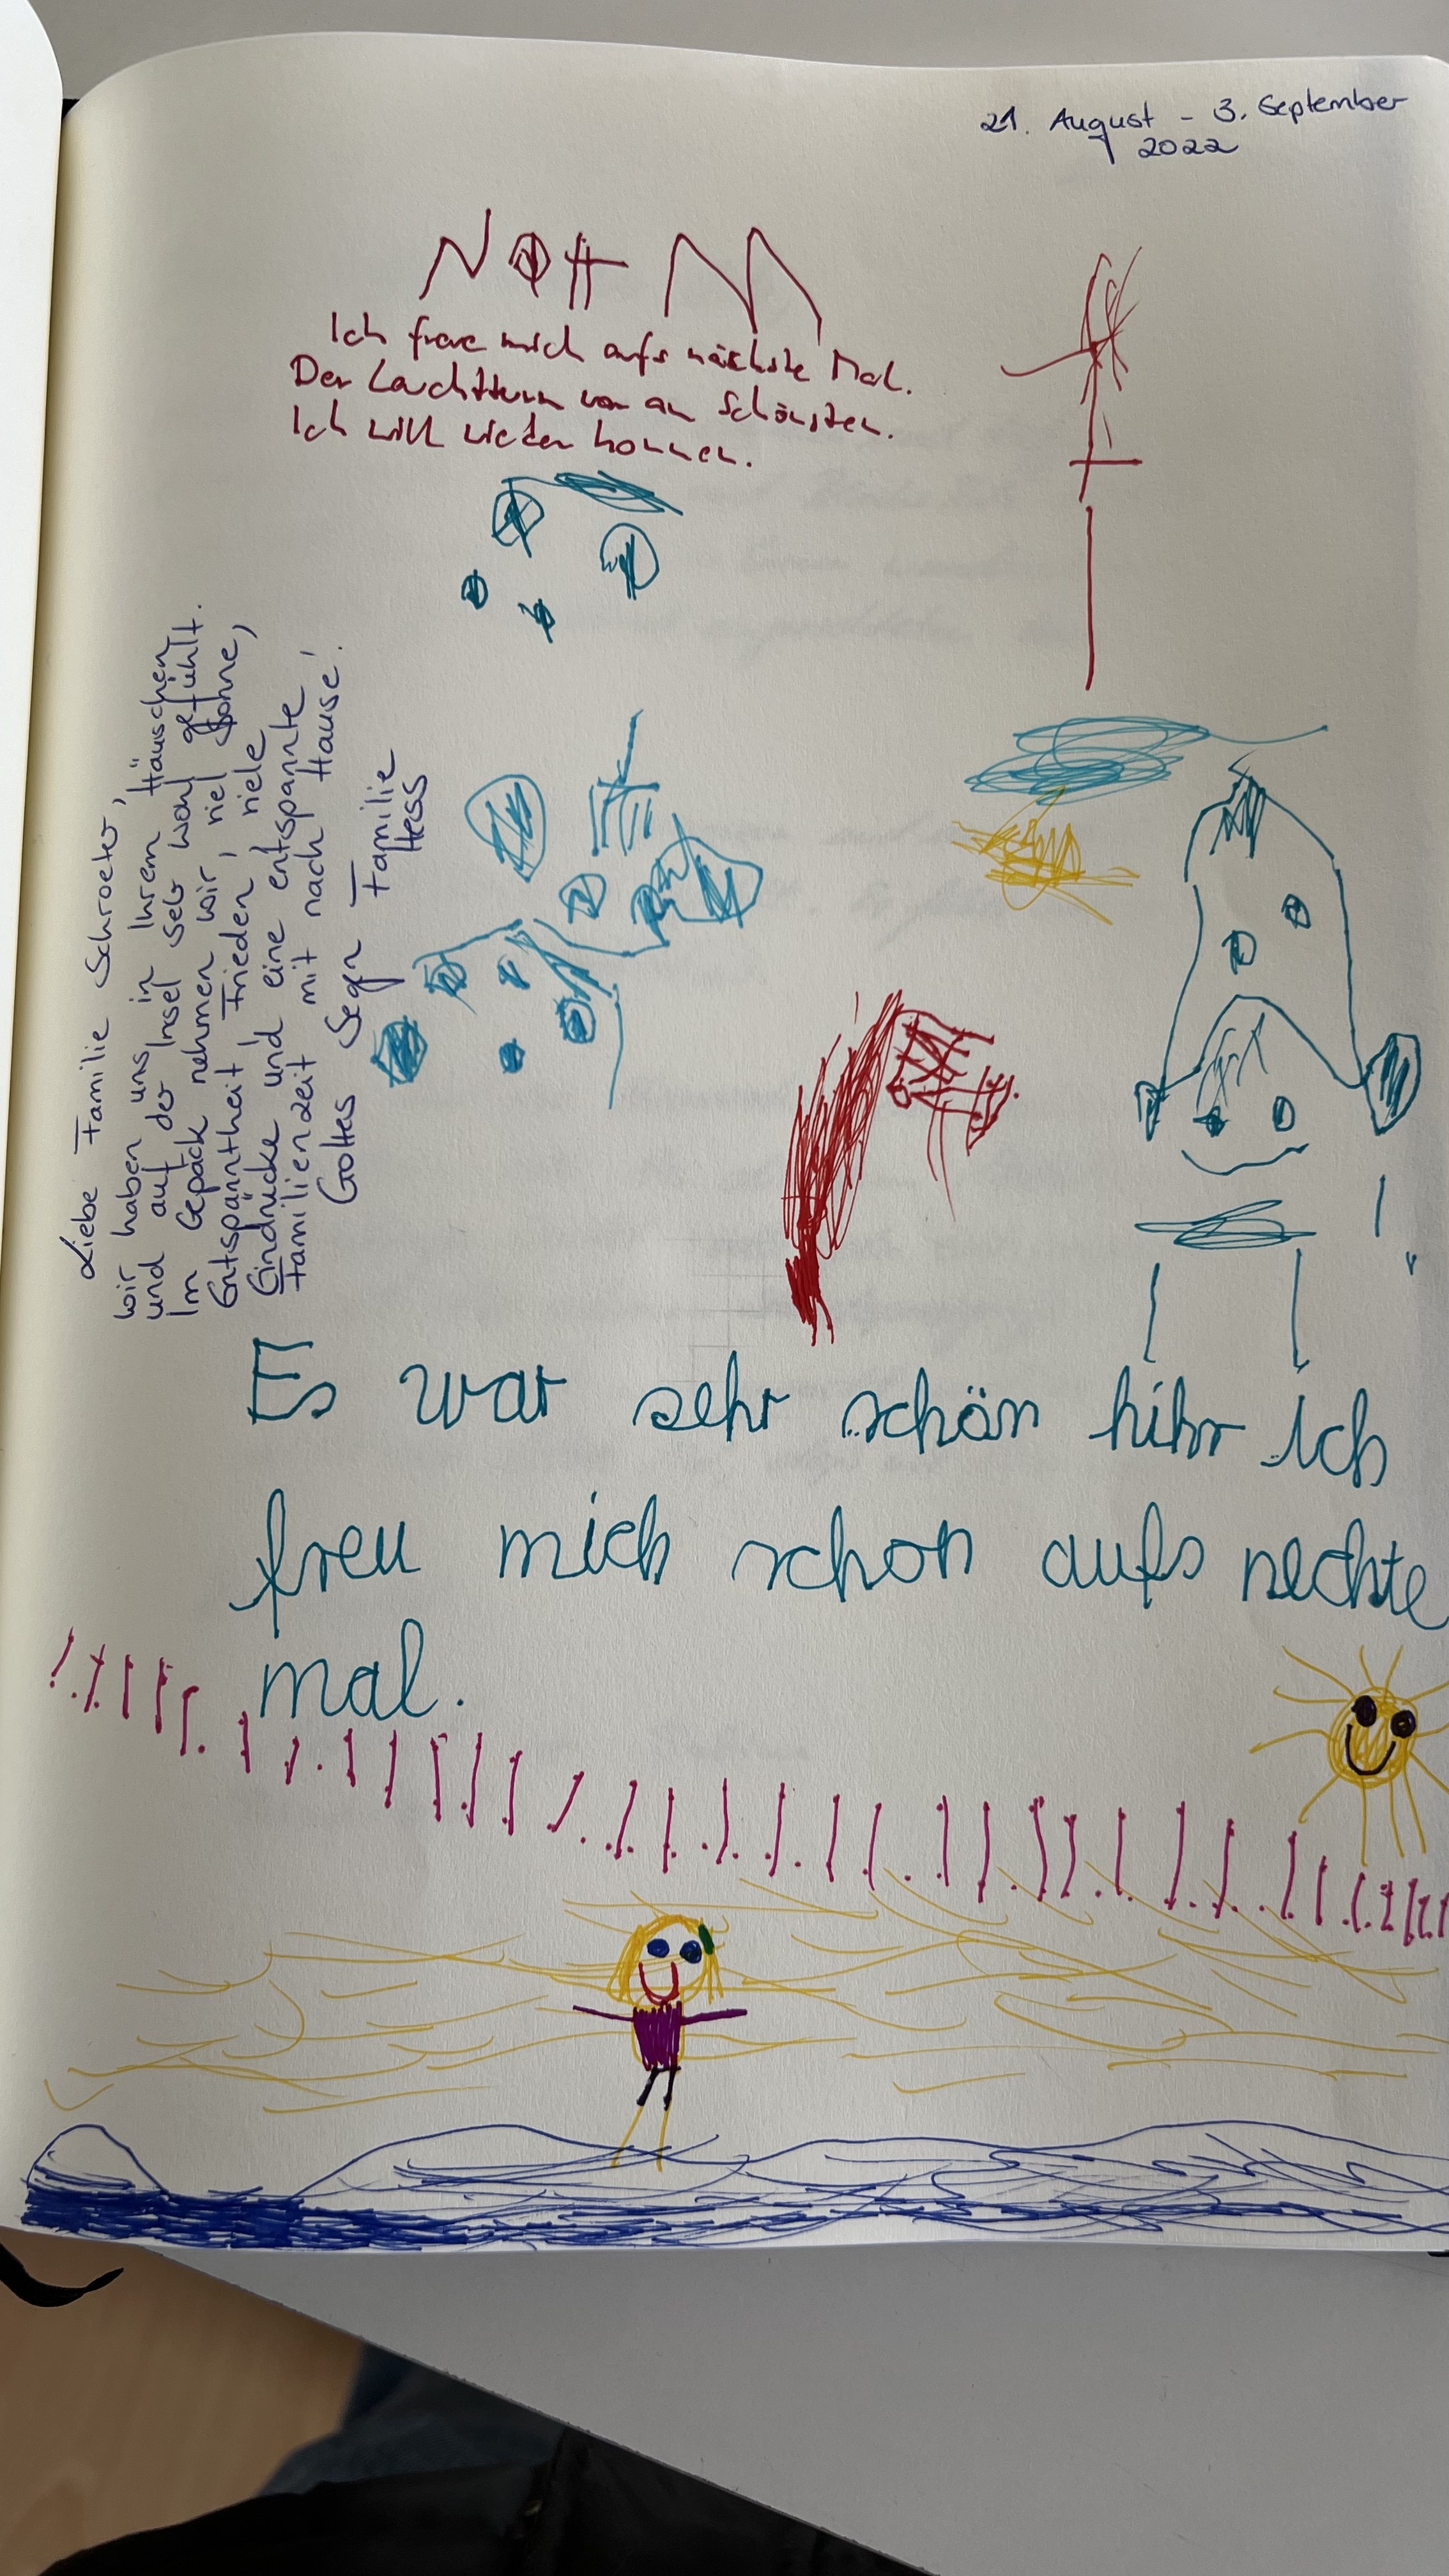 21. August - 3. September
2022
Ich freue mich aufs nächste Mal.
Der Leuchtturm war am Schönsten.
Ich will wieder kommen.
Liebe Familie Schroeter,
wir haben uns in Ihrem Häuschen
und auf der Insel sehr wohl gefühlt.
Im Gepäck nehmen wir, viel Sonne,
Entspanntheit, Frieden, viele
Eindrücke und eine entspannte
Familienzeit mit nach Hause!
Gottes Segn Familie
Hess
Es war sehr schön hihr ich
freu mich schon aufs nechte
mal.